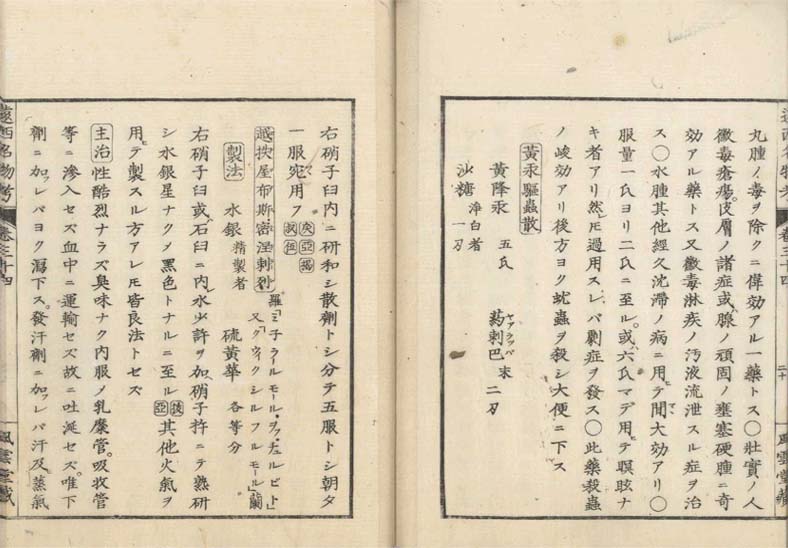 丸腫ノ毒ヲ除クニ偉効アル一藥トス〇壯實ノ人
黴毒瘡瘍皮膚ノ諸症或腺ノ頑固ノ壅塞硬腫ニ奇
効アル藥トス又黴毒淋疾ノ汚液流泄スル症ヲ治
ス〇水腫其他經久沈滯ノ病ニ用テ間大効アリ〇
服量一氏ヨリ二氏ニ至ル或六氏マデ用テ瞑眩ナ
キ者アリ然𪜈過用スレバ劇症ヲ發ス〇此藥殺蟲
ノ峻効アリ後方ヨク蚘蟲ヲ殺シ大便ニ下ス
黄汞驅蟲散
黄降汞 五氏 葯刺巴 ヤアラッパ 末 二刃
沙糖 淨白者 一刃
遠西名物考 二十 風雲堂藏
右硝子臼内ニ研和シ散劑トシ分テ五服トシ朝夕
一服宛用フ
越拽屋布斯密涅刺列 羅「ミ子ラールモール・ヲフ・
又「クウィクシルフルモール」蘭
製法 水銀 精製者 硫黄華 各等分
右硝子臼或石臼ニ内水少許ヲ加硝子杵ニテ熟研
シ水銀星ナクメ黑色トナルニ至ル 其他火氣ヲ
用テ製スル方アレ𪜈皆良法トセズ
主治 性酷烈ナラズ臭味ナク内服ノ乳糜管吸收管
等ニ滲入セズ血中ニ運輸セズ故ニ吐涎セズ唯下
劑ニ加レバヨク瀉下ス發汗劑ニ加レバ汗及蒸氣
遠西名物考 卷三十四 風雲堂藏